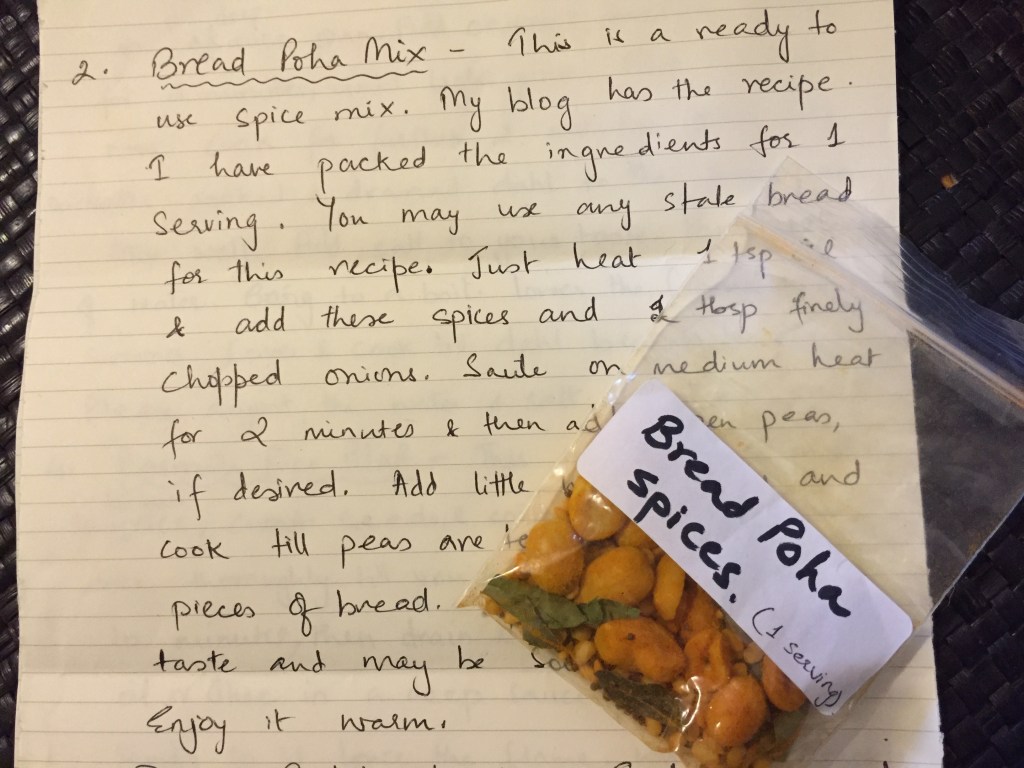 2. Bread Poha Mix - This is a ready to
use spice mix. My blog has the recipe.
I have packed the ingredients for 1
Serving. You may use any stale bread
for this recipe. Just heat 1 tsp
& add these spices and tbsp finely
Chopped onions. Saute on medium heat
for 2 minutes & then peas,
if desired. Add little and
cook till peas are
pieces of bread.
taste and may be
Enjoy it warm.
Bread Poha
spices.
(1 serving)